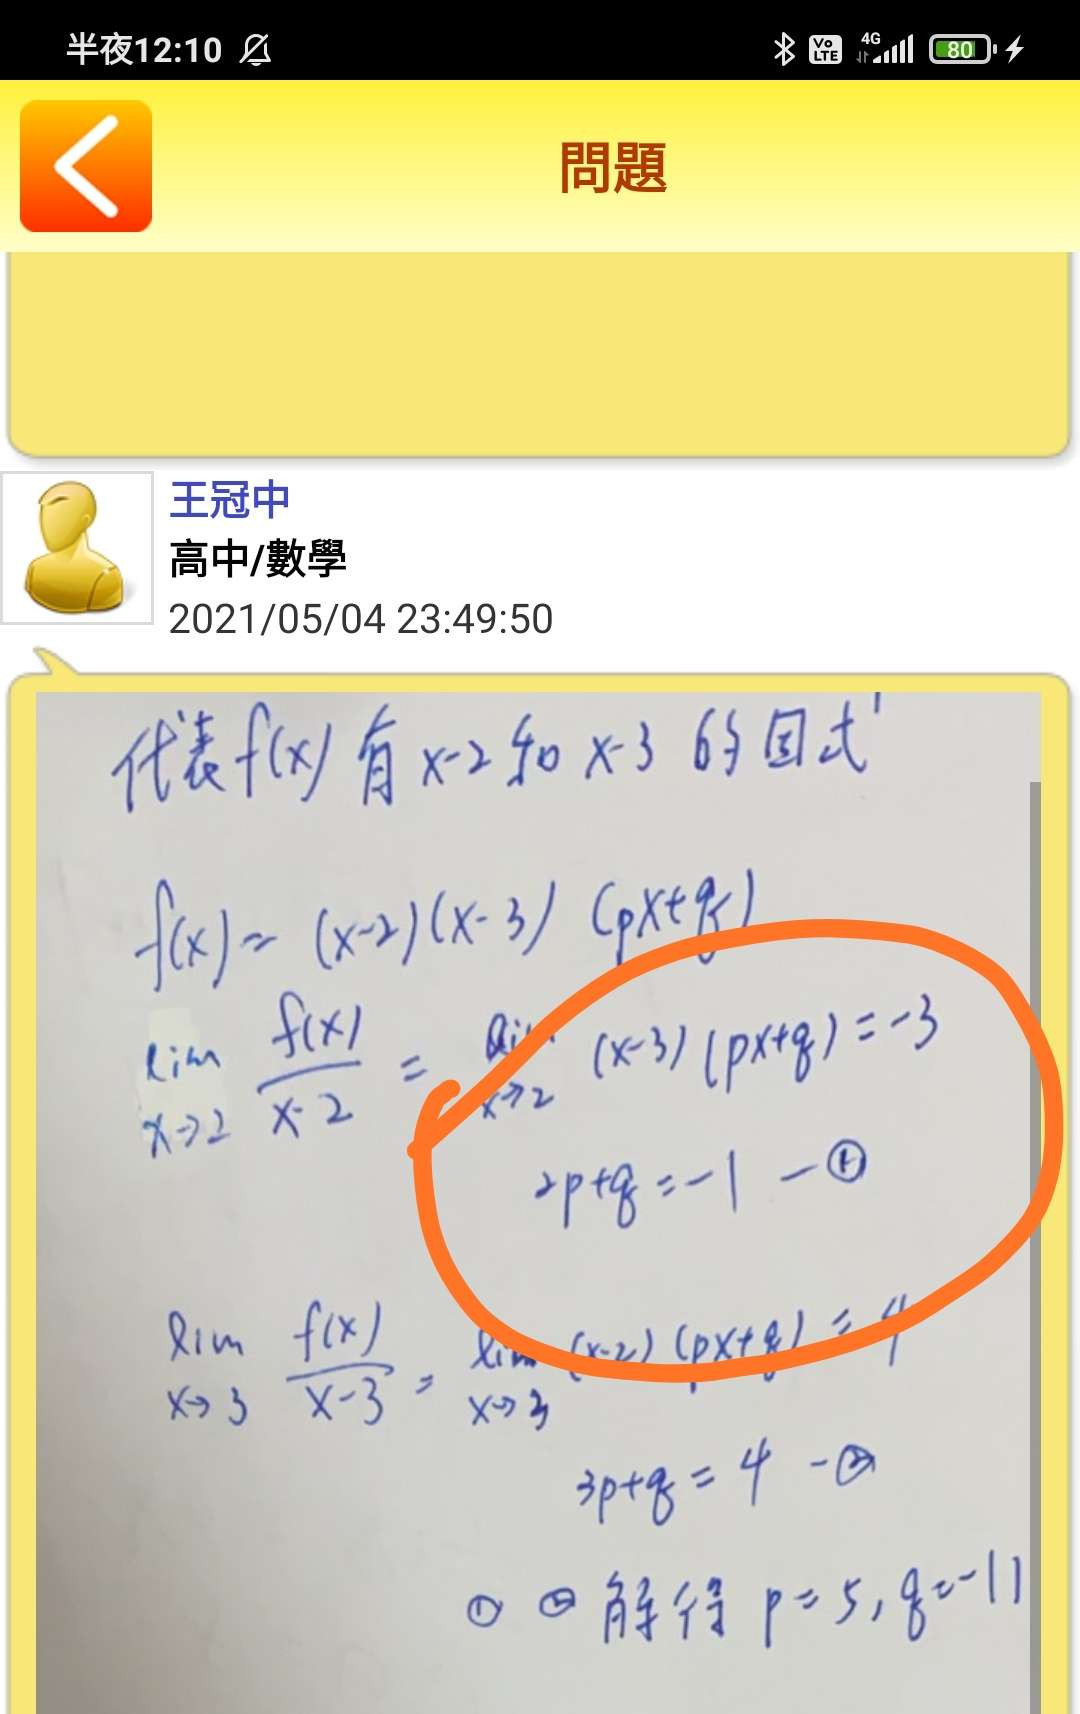 半夜12:10
Vo LTE 4G 80
問題
王冠中
高中/數學
2021/05/04 23:49:50
代表f(x)有x-2和x-3的因式
f(x)=(x-2)(x-3)(px+q)
lim x→2 f(x)/(x-2) = lim x→2 (x-3)(px+q)=-3
2p+q=-1 -①
lim x→3 f(x)/(x-3) = lim x→3 (x-2)(px+q)=4
3p+q=4 -②
① ② 解得 p=5, q=-11